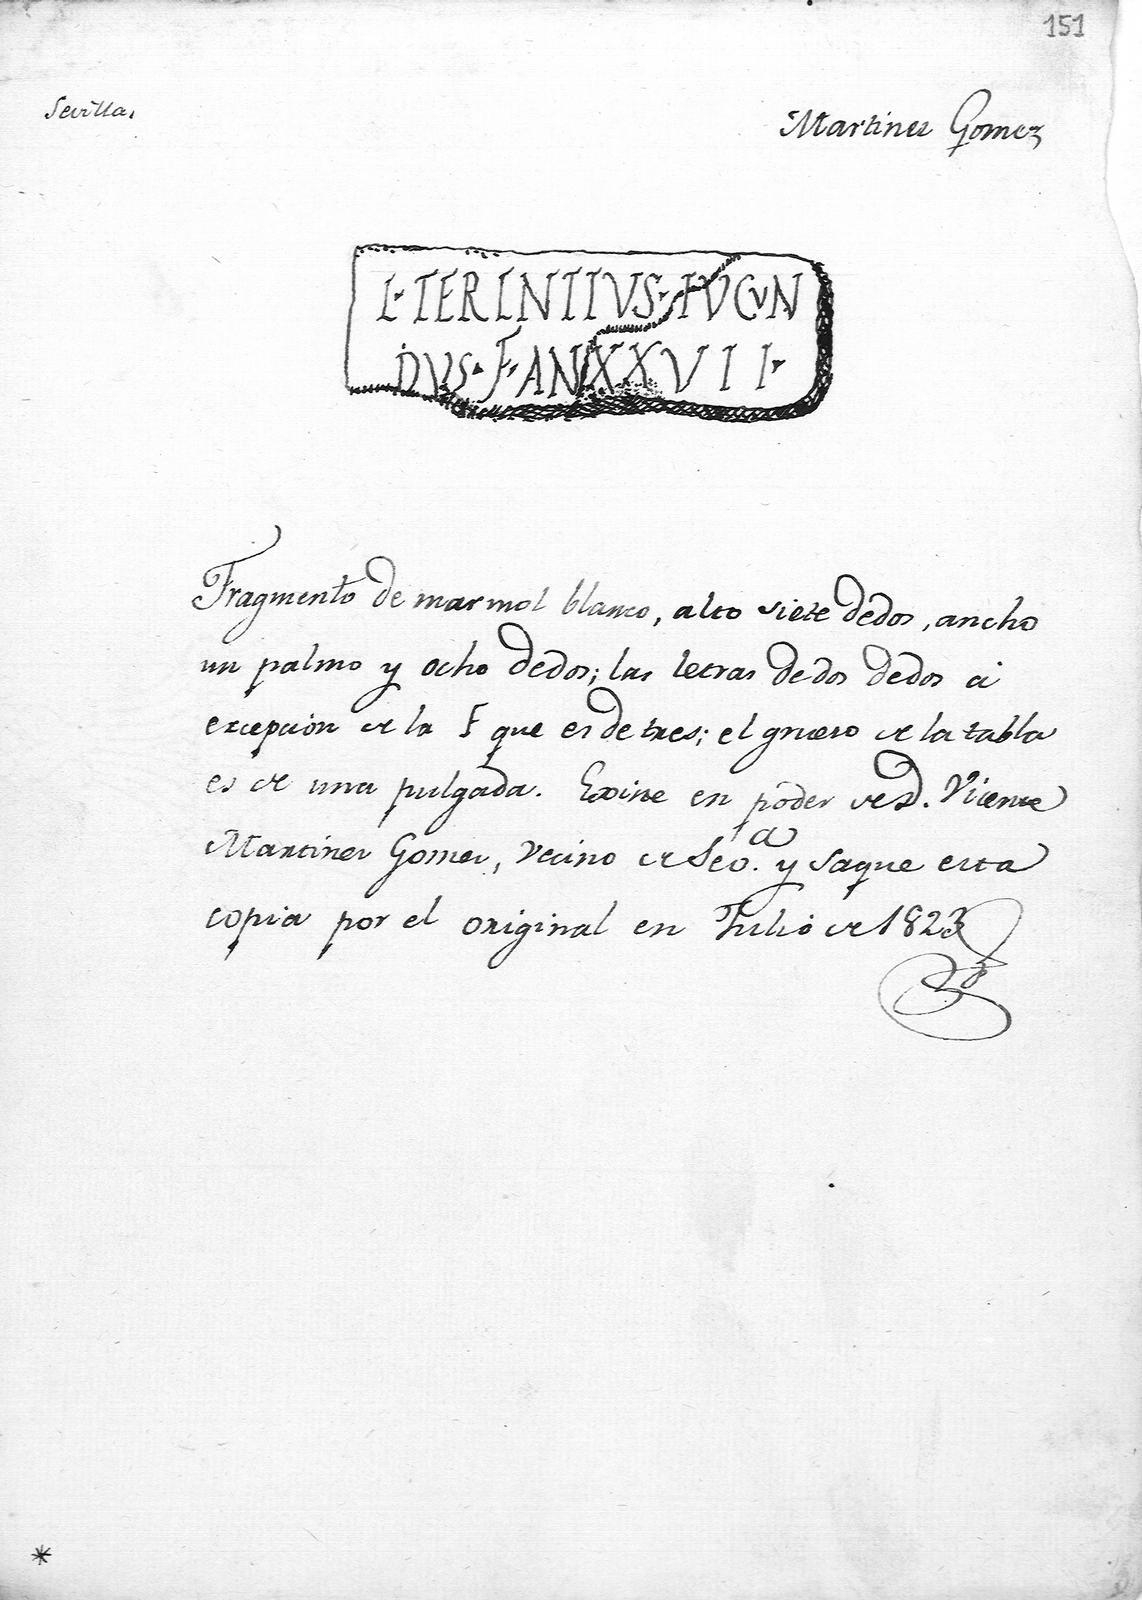 151
Sevilla.
Martinez Gomez
L· TERENTIVS· IVCVN
DVS· F· AN XXVII·
Fragmento de marmol blanco, alto siete dedos, ancho
un palmo y ocho dedos; las letras de dos dedos á
excepcion de la F que es de tres; el grueso de la tabla
es de una pulgada. Existe en poder de D. Vicente
Martinez Gomez, vecino de Sev.ª y saque esta
copia por el original en Julio de 1823
*